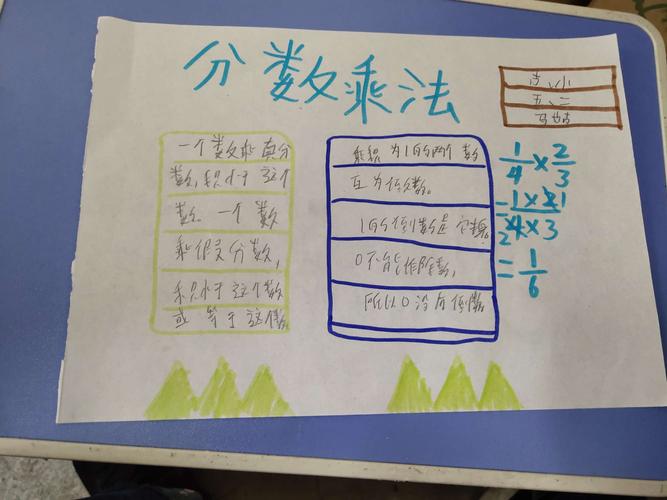 分数乘法
五、二
一个数乘真分
数,积小于这个
数. 一个数
乘假分数,
积小于这个数
或等于这个数.
乘积为1的两个数
互为倒数。
1的倒数是
0不能作除数,
所以0没有倒数
1/4×2/3
=1×2 1
2 4×3
=1/6